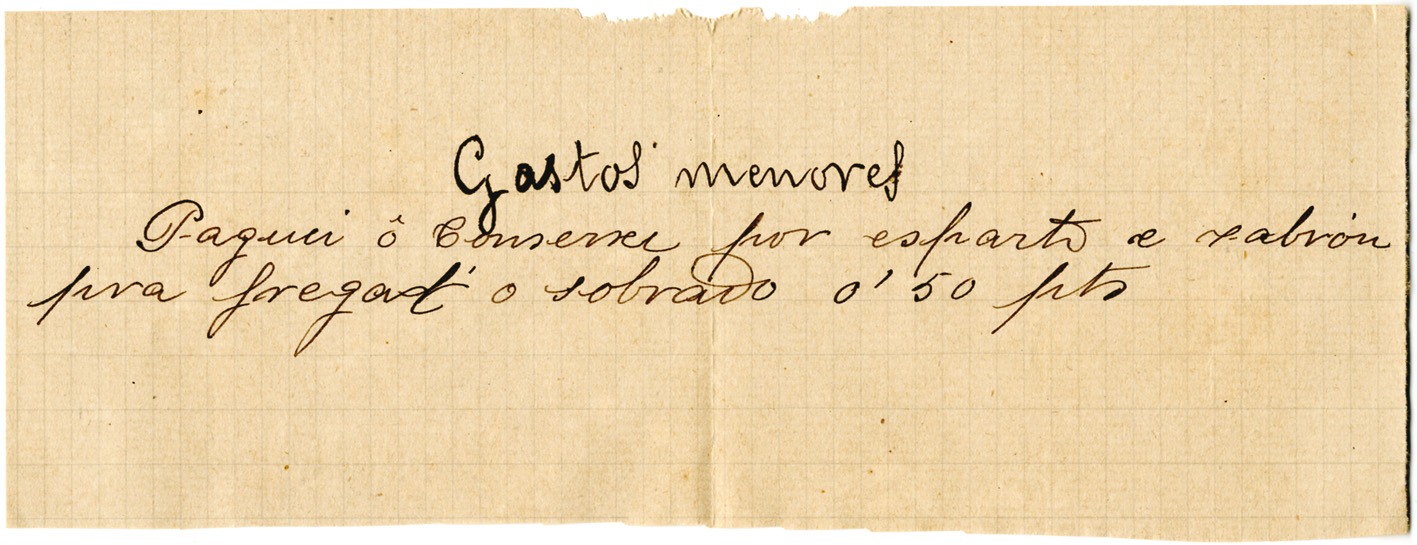 Gastos menores
Paguei ô Conserxe por esparto e xabrón
pra fregar o sobrado 0'50 pts